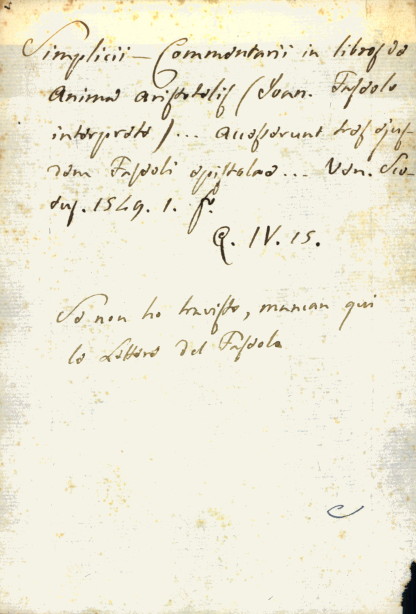 Simplicii — Commentarii in libros de
Anima Aristotelis (Joan. Faseolo
interprete) ... Accesserunt tres ejus-
dem Faseoli epistolae ... Ven. Sco-
tus. 1549. 1. f.º
Q. IV. 15.
Se non ho traviste, mancan qui
le Lettere del Faseolo